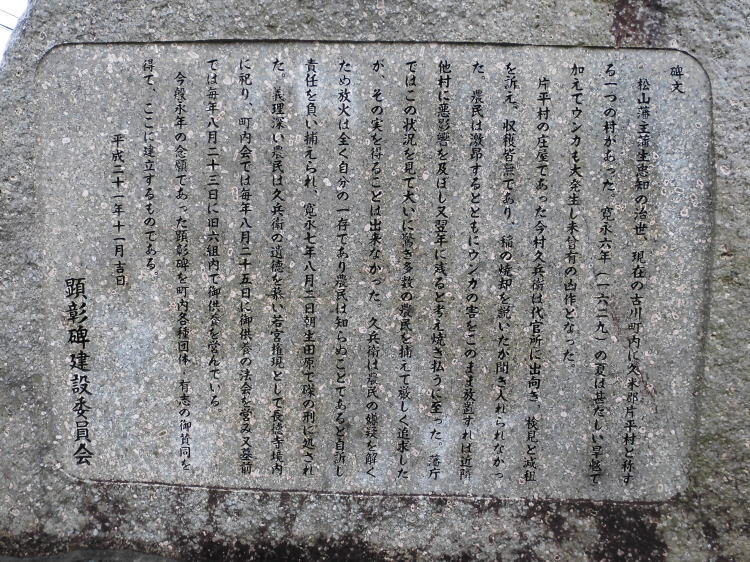 碑文
松山藩主蒲生忠知の治世、現在の古川町内に久米郡片平村と称す
る一つの村があった。寛永六年(一六二九)の夏は甚だしい旱魃で
加えてウンカも大発生し未曾有の凶作となった。
片平村の庄屋であった今村久兵衛は代官所に出向き、検見と減租
を訴え、収穫皆無であり、稲の焼却を説いたが聞き入れられなかっ
た。農民は激昂するとともにウンカの害をこのまま放置すれば近隣
他村に悪影響を及ぼし又翌年に残ると考え焼き払うに至った。藩庁
ではこの状況を見て大いに驚き多数の農民を捕えて厳しく追求した
が、その実を得ることは出来なかった。久兵衛は農民の嫌疑を解く
ため放火は全く自分の一存であり農民は知らぬことであると自訴し
責任を負い捕えられ、寛永七年八月二日朝生田原で磔の刑に処され
た。義理深い農民は久兵衛の道徳を慕い若宮権現として長徳寺境内
に祀り、町内会では毎年八月二十五日に御供養の法会を営み又墓前
では毎年八月二十三日に旧六組内で御供養を営んでいる
今般永年の念願であった顕彰碑を町内各種団体、有志の御賛同を
得て、ここに建立するものである。
平成二十一年十一月吉日
顕彰碑建設委員会